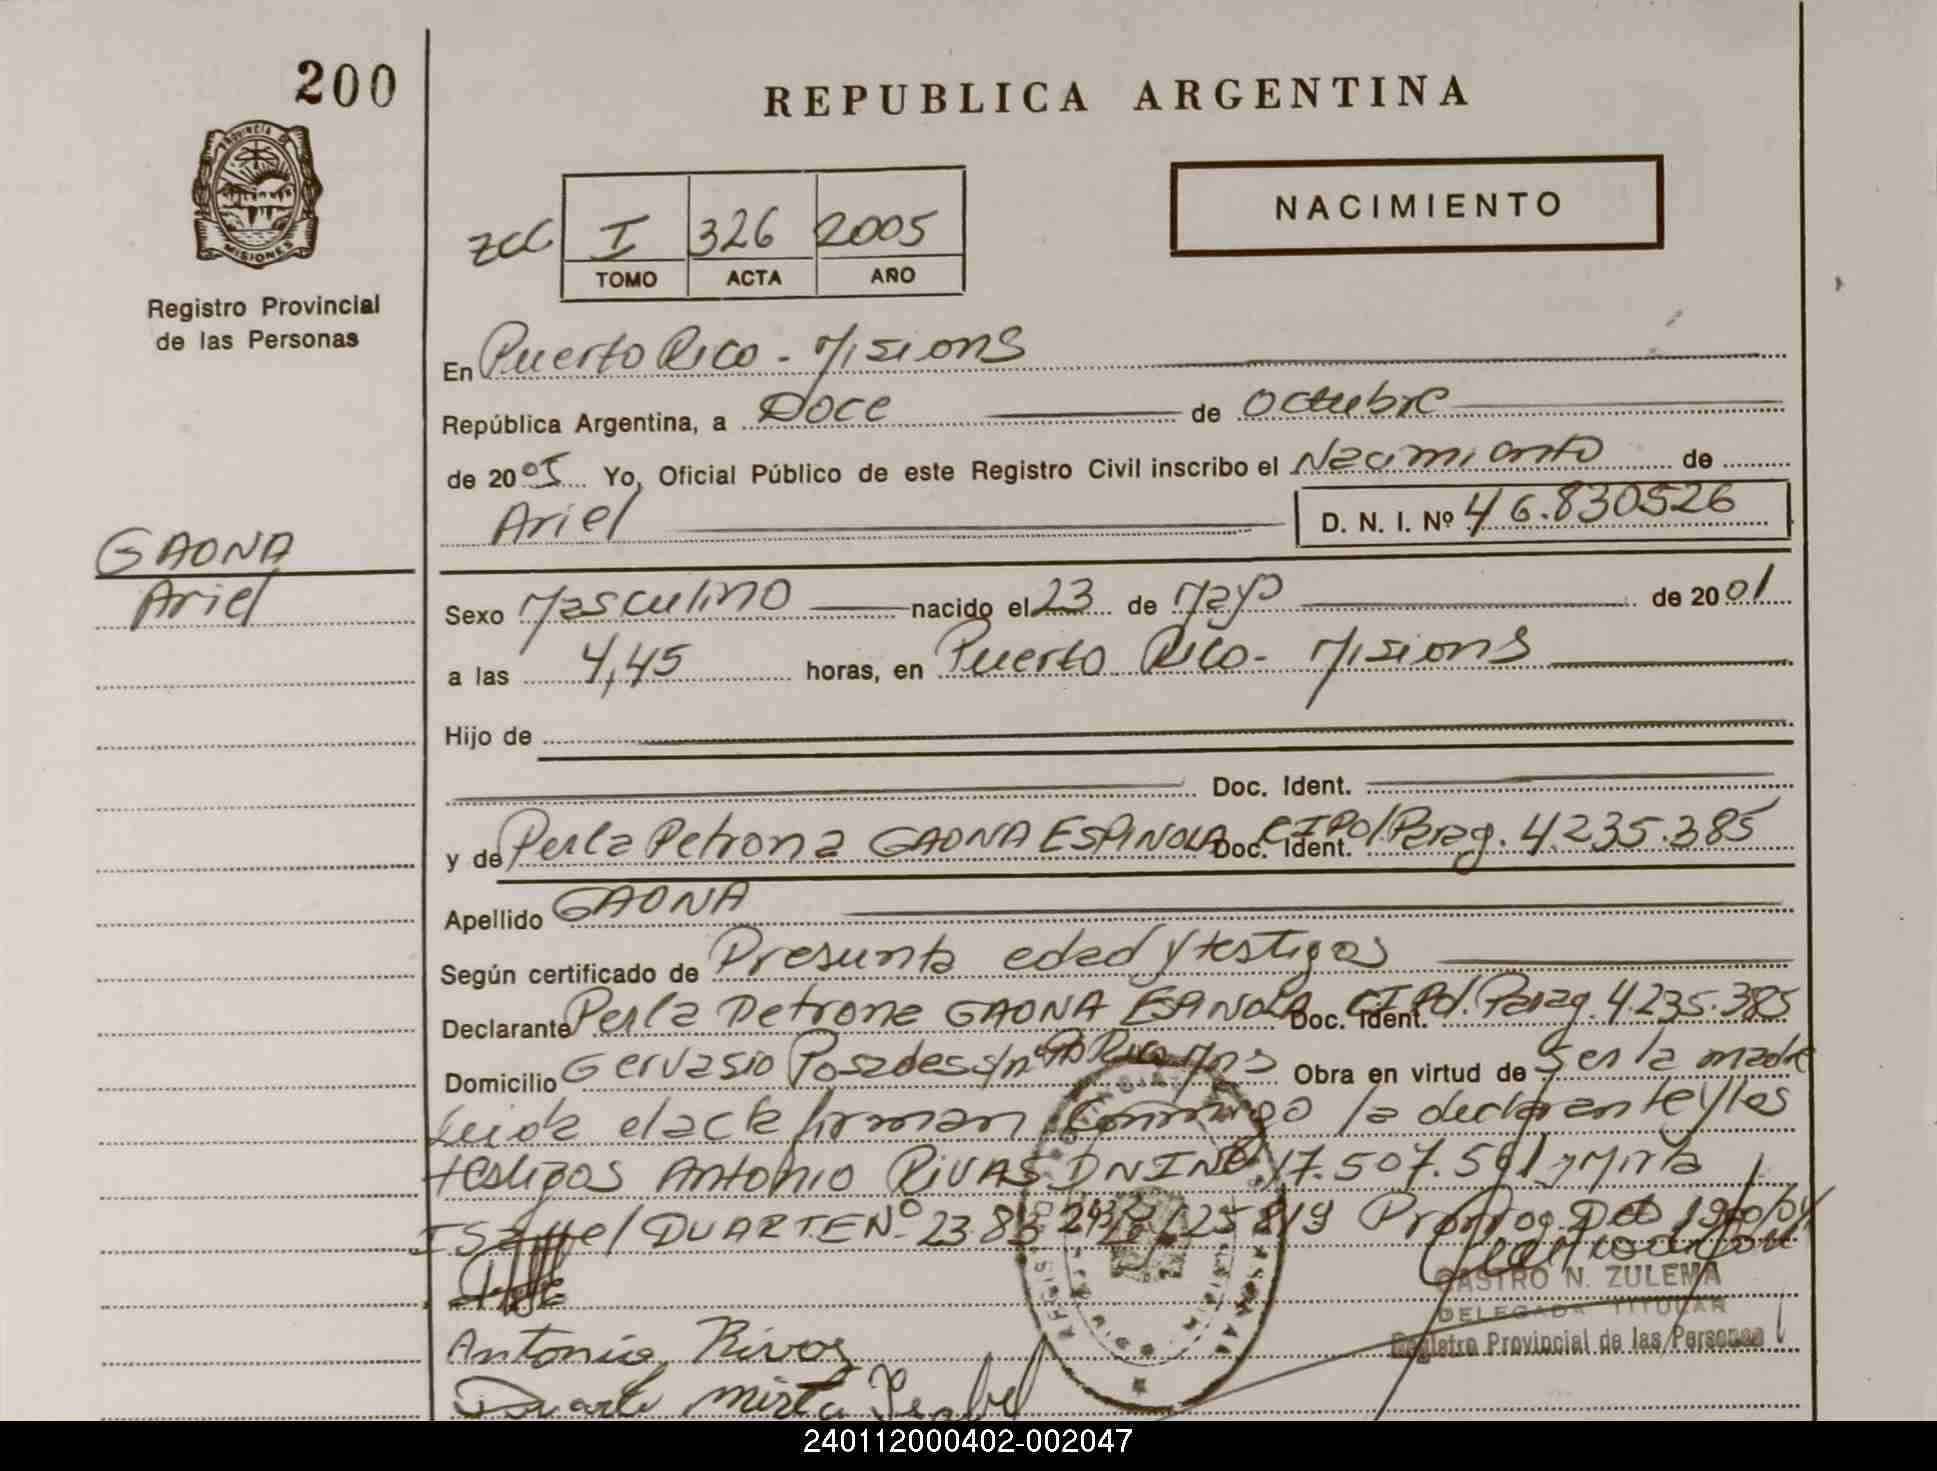 200
REPUBLICA ARGENTINA
PROVINCIA DE
MISIONES
Registro Provincial
de las Personas
NACIMIENTO
I 326 2005
TOMO ACTA AÑO
En Puerto Rico - Misiones
República Argentina, a Doce de octubre
de 2005 Yo, Oficial Público de este Registro Civil inscribo el Nacimiento de
Ariel D. N. I. Nº 46.830526
GAONA
Ariel
Sexo Masculino nacido el 23 de Mayo de 2001
a las 4,45 horas, en Puerto Rico - Misiones
Hijo de
Doc. Ident.
y de Perla Petrona GAONA ESPINOLA Doc. Ident. CIPol. Parag. 4.235.385
Apellido GAONA
Según certificado de Presunta edad y testigos
Declarante Perla Petrona GAONA ESPINOLA Doc. Ident. CIPol. Parag. 4.235.385
Domicilio Gervasio Posadas s/nº Pto Rico Mns Obra en virtud de Ser la madre
Leida el acta firman conmigo la declarante y los
testigos Antonio RIVAS DNI Nº 17.507.561 y Mirta
Isabel DUARTE Nº 23.83
CASTRO N. ZULEMA
DELEGADA TITULAR
Registro Provincial de las Personas
Antonio Rivas
Duarte Mirta Isabel
240112000402-002047